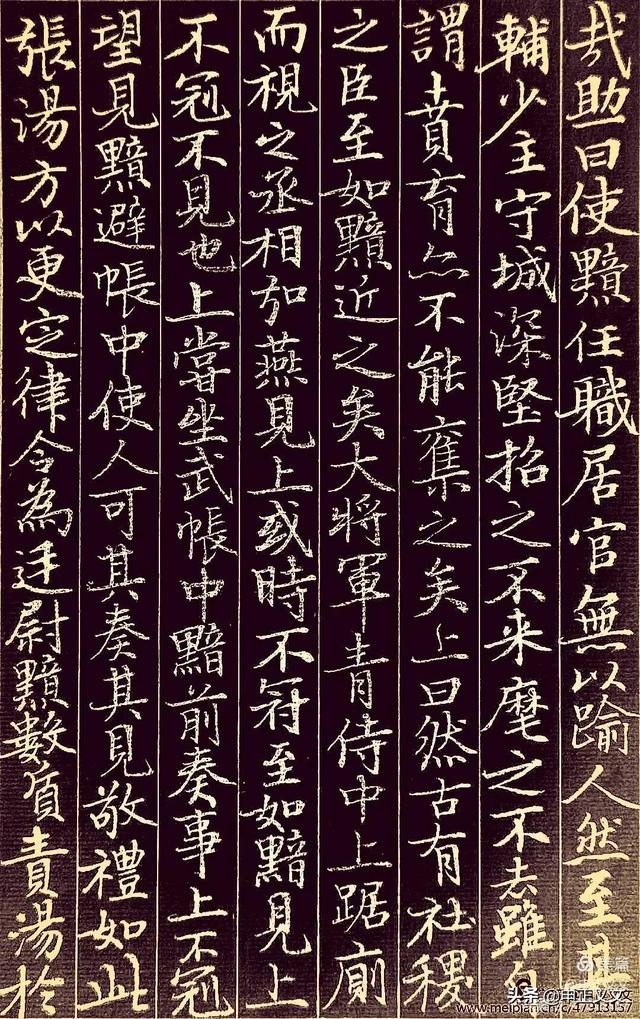 哉助曰使黯任職居官無以踰人然至其
輔少主守城深堅招之不来麾之不去雖自
謂賁育亦不能奪之矣上曰然古有社稷
之臣至如黯近之矣大将軍青侍中上踞廁
而視之丞相如燕見上或時不冠至如黯見上
不冠不見也上嘗坐武帳中黯前奏事上不冠
望見黯避帳中使人可其奏其見敬禮如此
張湯方以更定律令為廷尉黯數質責湯於
美篇
头条 @申正文文
www.meipian.cn/c/47913157